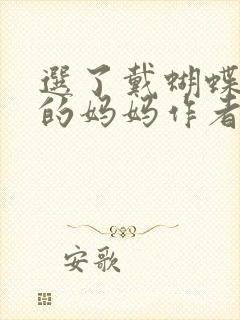 選了戴蝴蝶
的妈妈作者
安歌